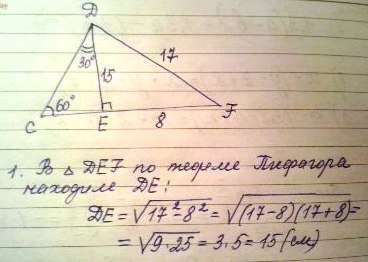 D
30°
15
17
60°
C
E
8
F
1. В △ DEF по теореме Пифагора
находим DE:
DE = √17² - 8² = √(17-8)(17+8) =
= √9·25 = 3·5 = 15 (см)